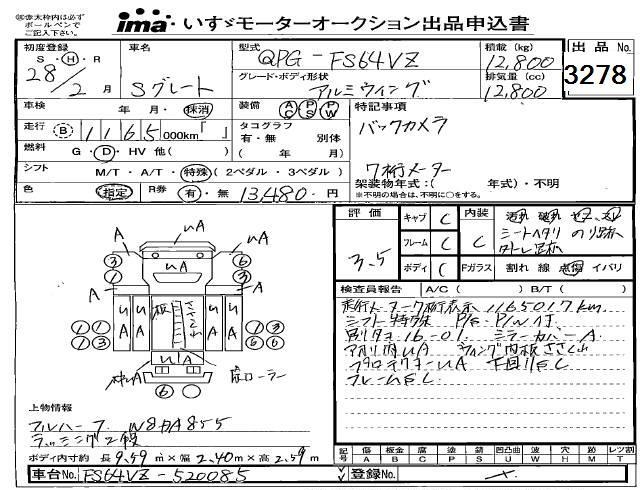 ※太枠内は必ず
ボールペンで
ご記入下さい。
ima いすゞモーターオークション出品申込書
初度登録 車名 型式 QPG-FS64VZ 積載 (kg) 12,800 出品 No.
S・H・R 28/2月 Sグレート グレード・ボディ形状 アルミウイング 排気量 (cc) 12,800 3278
車検 年 月・抹消 装備 AC PS PW 特記事項
走行 B 1165,000km「 」 タコグラフ 有・無 別体 バックカメラ
燃料 G・D・HV 他( ) ( 年 月) 7桁メーター
シフト M/T・A/T・特殊(2ペダル・3ペダル) 架装物年式:( 年式)・不明
※不明の場合は、不明に○をする。
色 指定 R券 有・無 13,480円
評価 3.5 キャブ C 内装 C
フレーム C シートヘタリ のり跡
ボディ C Fガラス 割れ 線 点傷 イバリ
検査員報告 A/C( ) B/T( )
走行メーター7桁表示 1165017km
シフト特殊 P/S・P/W付
ミラーカバーA
ウイング内板ささくれ
下回りELC
フレームELC
A A UA
3 1 UA 6 3
A A
1 1 UA UA 板 ささくれ UA UA 1 3
1 1 6 6
UA
枠UA ローラー
6
上物情報
フルハーフ W8DA855
ラッシング2段
ボディ内寸約 長 9.59m×幅 2.40m×高 2.59m
記号 傷 A 板金 B 腐 C 塗 P 錆 S 凹凸曲 U 波 W 穴 H 跡 M 欠 R トレ T
車台No. FS64VZ-520085 登録No.